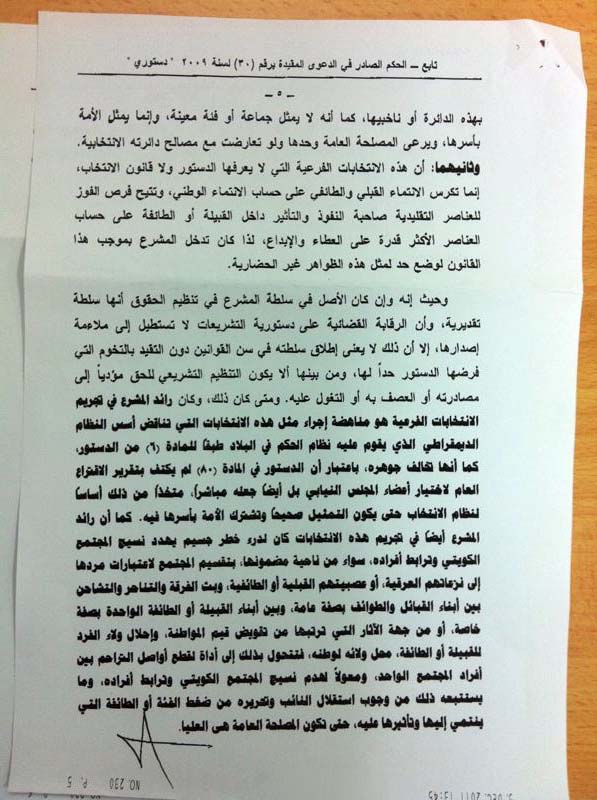 تابع – الحكم الصادر في الدعوى المقيدة برقم (٣٠) لسنة ٢٠٠٩ " دستوري "
– ٥ –
بهذه الدائرة أو ناخبيها، كما أنه لا يمثل جماعة أو فئة معينة، وإنما يمثل الأمة
بأسرها، ويرعى المصلحة العامة وحدها ولو تعارضت مع مصالح دائرته الانتخابية.
وثانيهما: أن هذه الانتخابات الفرعية التي لا يعرفها الدستور ولا قانون الانتخاب،
إنما تكرس الانتماء القبلي والطائفي على حساب الانتماء الوطني، وتتيح فرص الفوز
للعناصر التقليدية صاحبة النفوذ والتأثير داخل القبيلة أو الطائفة على حساب
العناصر الأكثر قدرة على العطاء والإبداع، لذا كان تدخل المشرع بموجب هذا
القانون لوضع حد لمثل هذه الظواهر غير الحضارية.
وحيث إنه وإن كان الأصل في سلطة المشرع في تنظيم الحقوق أنها سلطة
تقديرية، وأن الرقابة القضائية على دستورية التشريعات لا تستطيل إلى ملاءمة
إصدارها، إلا أن ذلك لا يعنى إطلاق سلطته في سن القوانين دون التقيد بالتخوم التي
فرضها الدستور حداً لها، ومن بينها ألا يكون التنظيم التشريعي للحق مؤدياً إلى
مصادرته أو العصف به أو التغول عليه. ومتى كان ذلك، وكان رائد المشرع في تجريم
الانتخابات الفرعية هو مناهضة إجراء مثل هذه الانتخابات التي تناقض أسس النظام
الديمقراطي الذي يقوم عليه نظام الحكم في البلاد طبقاً للمادة (٦) من الدستور،
كما أنها تخالف جوهره، باعتبار أن الدستور في المادة (٨٠) لم يكتف بتقرير الاقتراع
العام لاختيار أعضاء المجلس النيابي بل أيضاً جعله مباشراً، متخذاً من ذلك أساساً
لنظام الانتخاب حتى يكون التمثيل صحيحاً وتشترك الأمة بأسرها فيه. كما أن رائد
المشرع أيضاً في تجريم هذه الانتخابات كان لدرء خطر جسيم يهدد نسيج المجتمع
الكويتي وترابط أفراده، سواء من ناحية مضمونها، بتقسيم المجتمع لاعتبارات مردها
إلى نزعاتهم العرقية، أو عصبيتهم القبلية أو الطائفية، وبث الفرقة والتناحر والتشاحن
بين أبناء القبائل والطوائف بصفة عامة، وبين أبناء القبيلة أو الطائفة الواحدة بصفة
خاصة، أو من جهة الآثار التي ترتبها من تقويض قيم المواطنة، وإحلال ولاء الفرد
للقبيلة أو الطائفة، محل ولائه لوطنه، فتتحول بذلك إلى أداة لقطع أواصل التراحم بين
أفراد المجتمع الواحد، ومعولاً لهدم نسيج المجتمع الكويتي وترابط أفراده، وما
يستتبعه ذلك من وجوب استقلال النائب وتحريره من ضغط الفئة أو الطائفة التي
ينتمي إليها وتأثيرها عليه، حتى تكون المصلحة العامة هى العليا.
NO. 230 P. 5
5. DEC. 2011 13:45